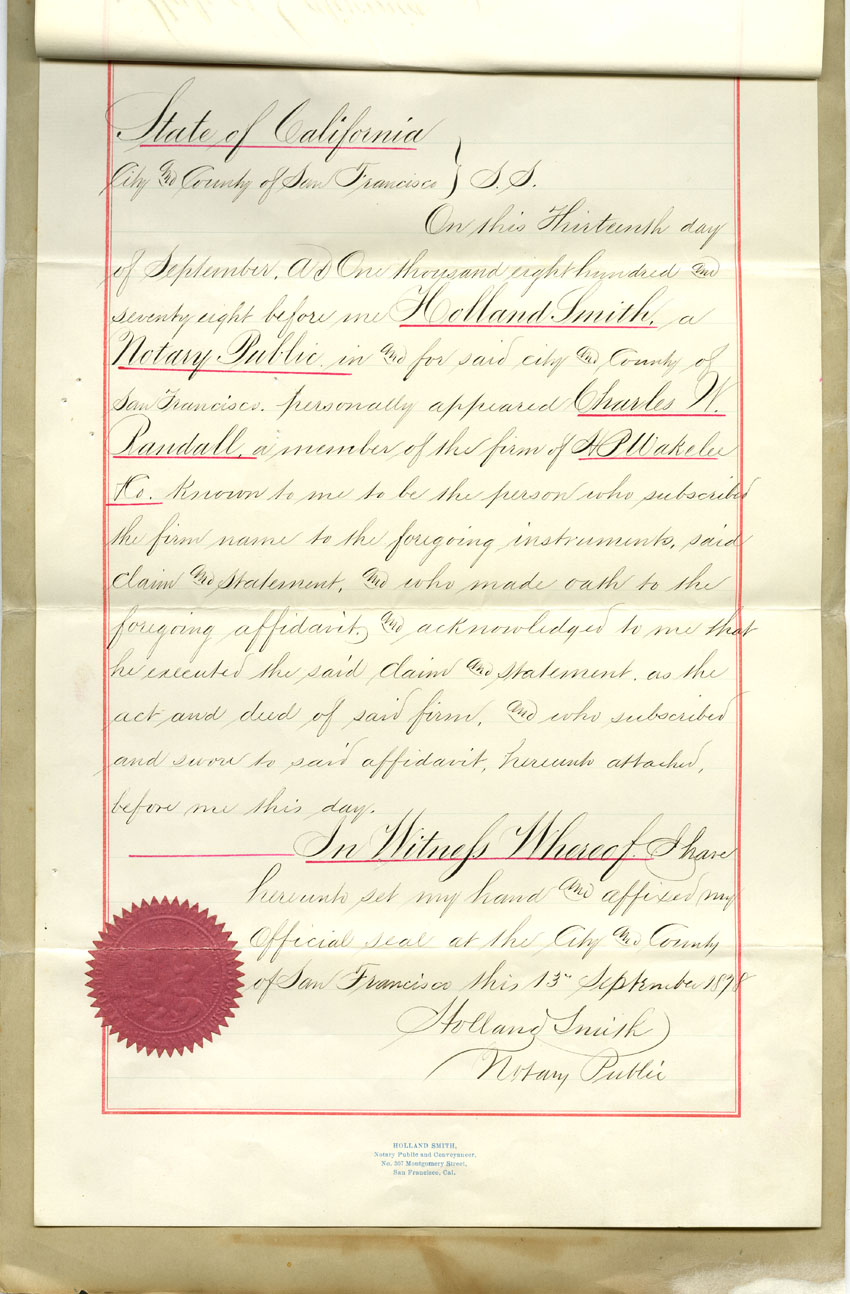 State of California
City and County of San Francisco } S.S.
On this Thirteenth day
of September, AD One thousand eight hundred and
seventy eight before me Holland Smith, a
Notary Public, in and for said city and County of
San Francisco. personally appeared Charles W.
Randall, a member of the firm of HP Wakelee
&Co. known to me to be the person who subscribed
the firm name to the foregoing instruments, said
claim and statement, and who made oath to the
foregoing affidavit, and acknowledged to me that
he executed the said claim and statement, as the
act and deed of said firm, and who subscribed
and swore to said affidavit, hereunto attached,
before me this day.
In Witness Whereof. I have
hereunto set my hand and affixed my
Official seal at the City and County
of San Francisco this 13th September 1878
Holland Smith
Notary Public
HOLLAND SMITH,
Notary Public and Conveyancer,
No. 307 Montgomery Street,
San Francisco, Cal.